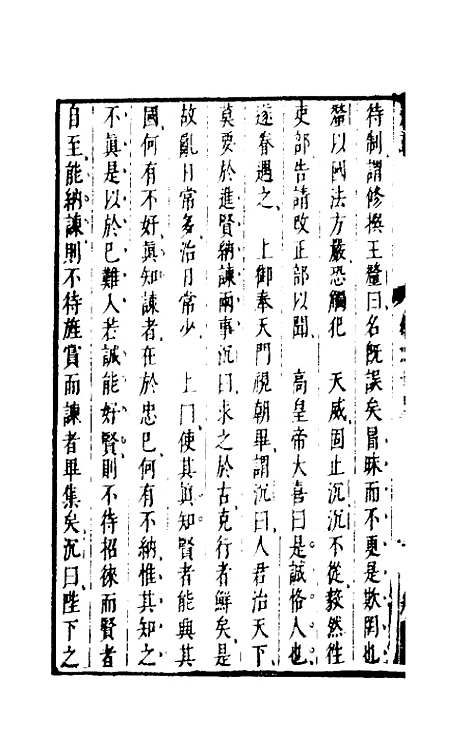 待制謂修撰王釐曰名旣誤矣冒昧而不更是欺罔也
釐以國法方嚴恐觸犯　天威固止沉沉不從毅然徃
吏部告請改正部以聞　高皇帝大喜曰是誠恪人也
遂眷遇之　上御奉天門視朝畢謂沉曰人君治天下
莫要於進賢納諫兩事沉曰求之於古克行者鮮矣是
故亂日常多治日常少　上曰使其眞知賢者能與其
國何有不好眞知諫者在於忠巳何有不納惟其知之
不眞是以於巳難入若誠能好賢則不待招徠而賢者
自至能納諫則不待旌賞而諫者畢集矣沉曰陛下之